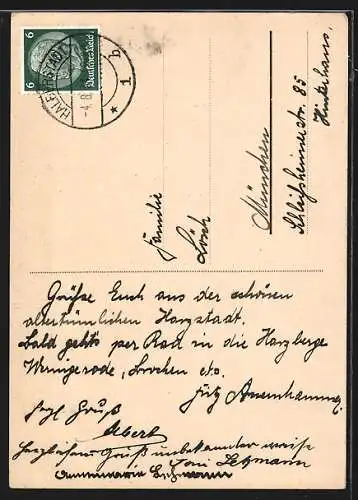 6
Deutsches Reich
6
HALBERSTADT
-4.8.
* 1 b
Familie
Lösch
München
Schleißheimerstr. 85
Hinterhaus.
Grüße Euch aus der schönen
altertümlichen Harzstadt.
Bald gehts per Rad in die Harzberge
Wernigerode, Brocken etc.
Fritz
Gruß
Albert
Herzlichen Gruß unbekannter weise
Toni Letzmann
Annemarie Letzmann